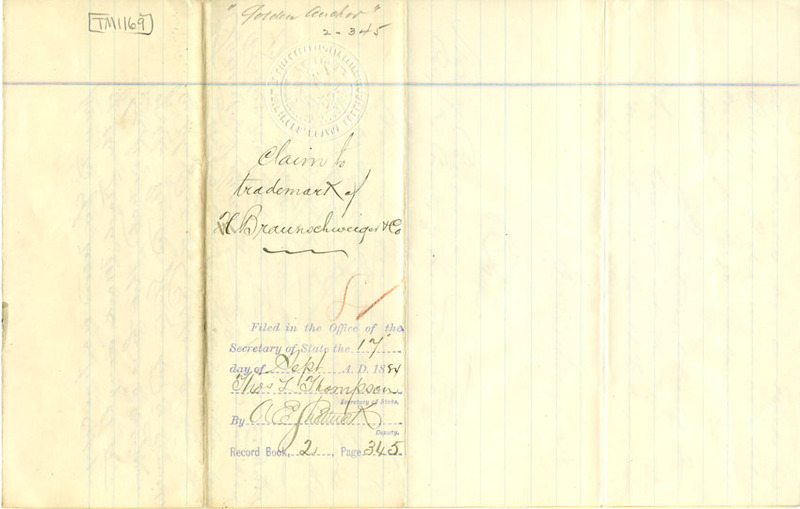 TM1169
"Golden Anchor"
2-345
Claim to
trademark of
H Braunschweiger & Co
Filed in the Office of the
Secretary of State the 17
day of Sept A. D. 188
Thos L Thompson
Secretary of State.
By A E
Deputy.
Record Book, 2, Page 345